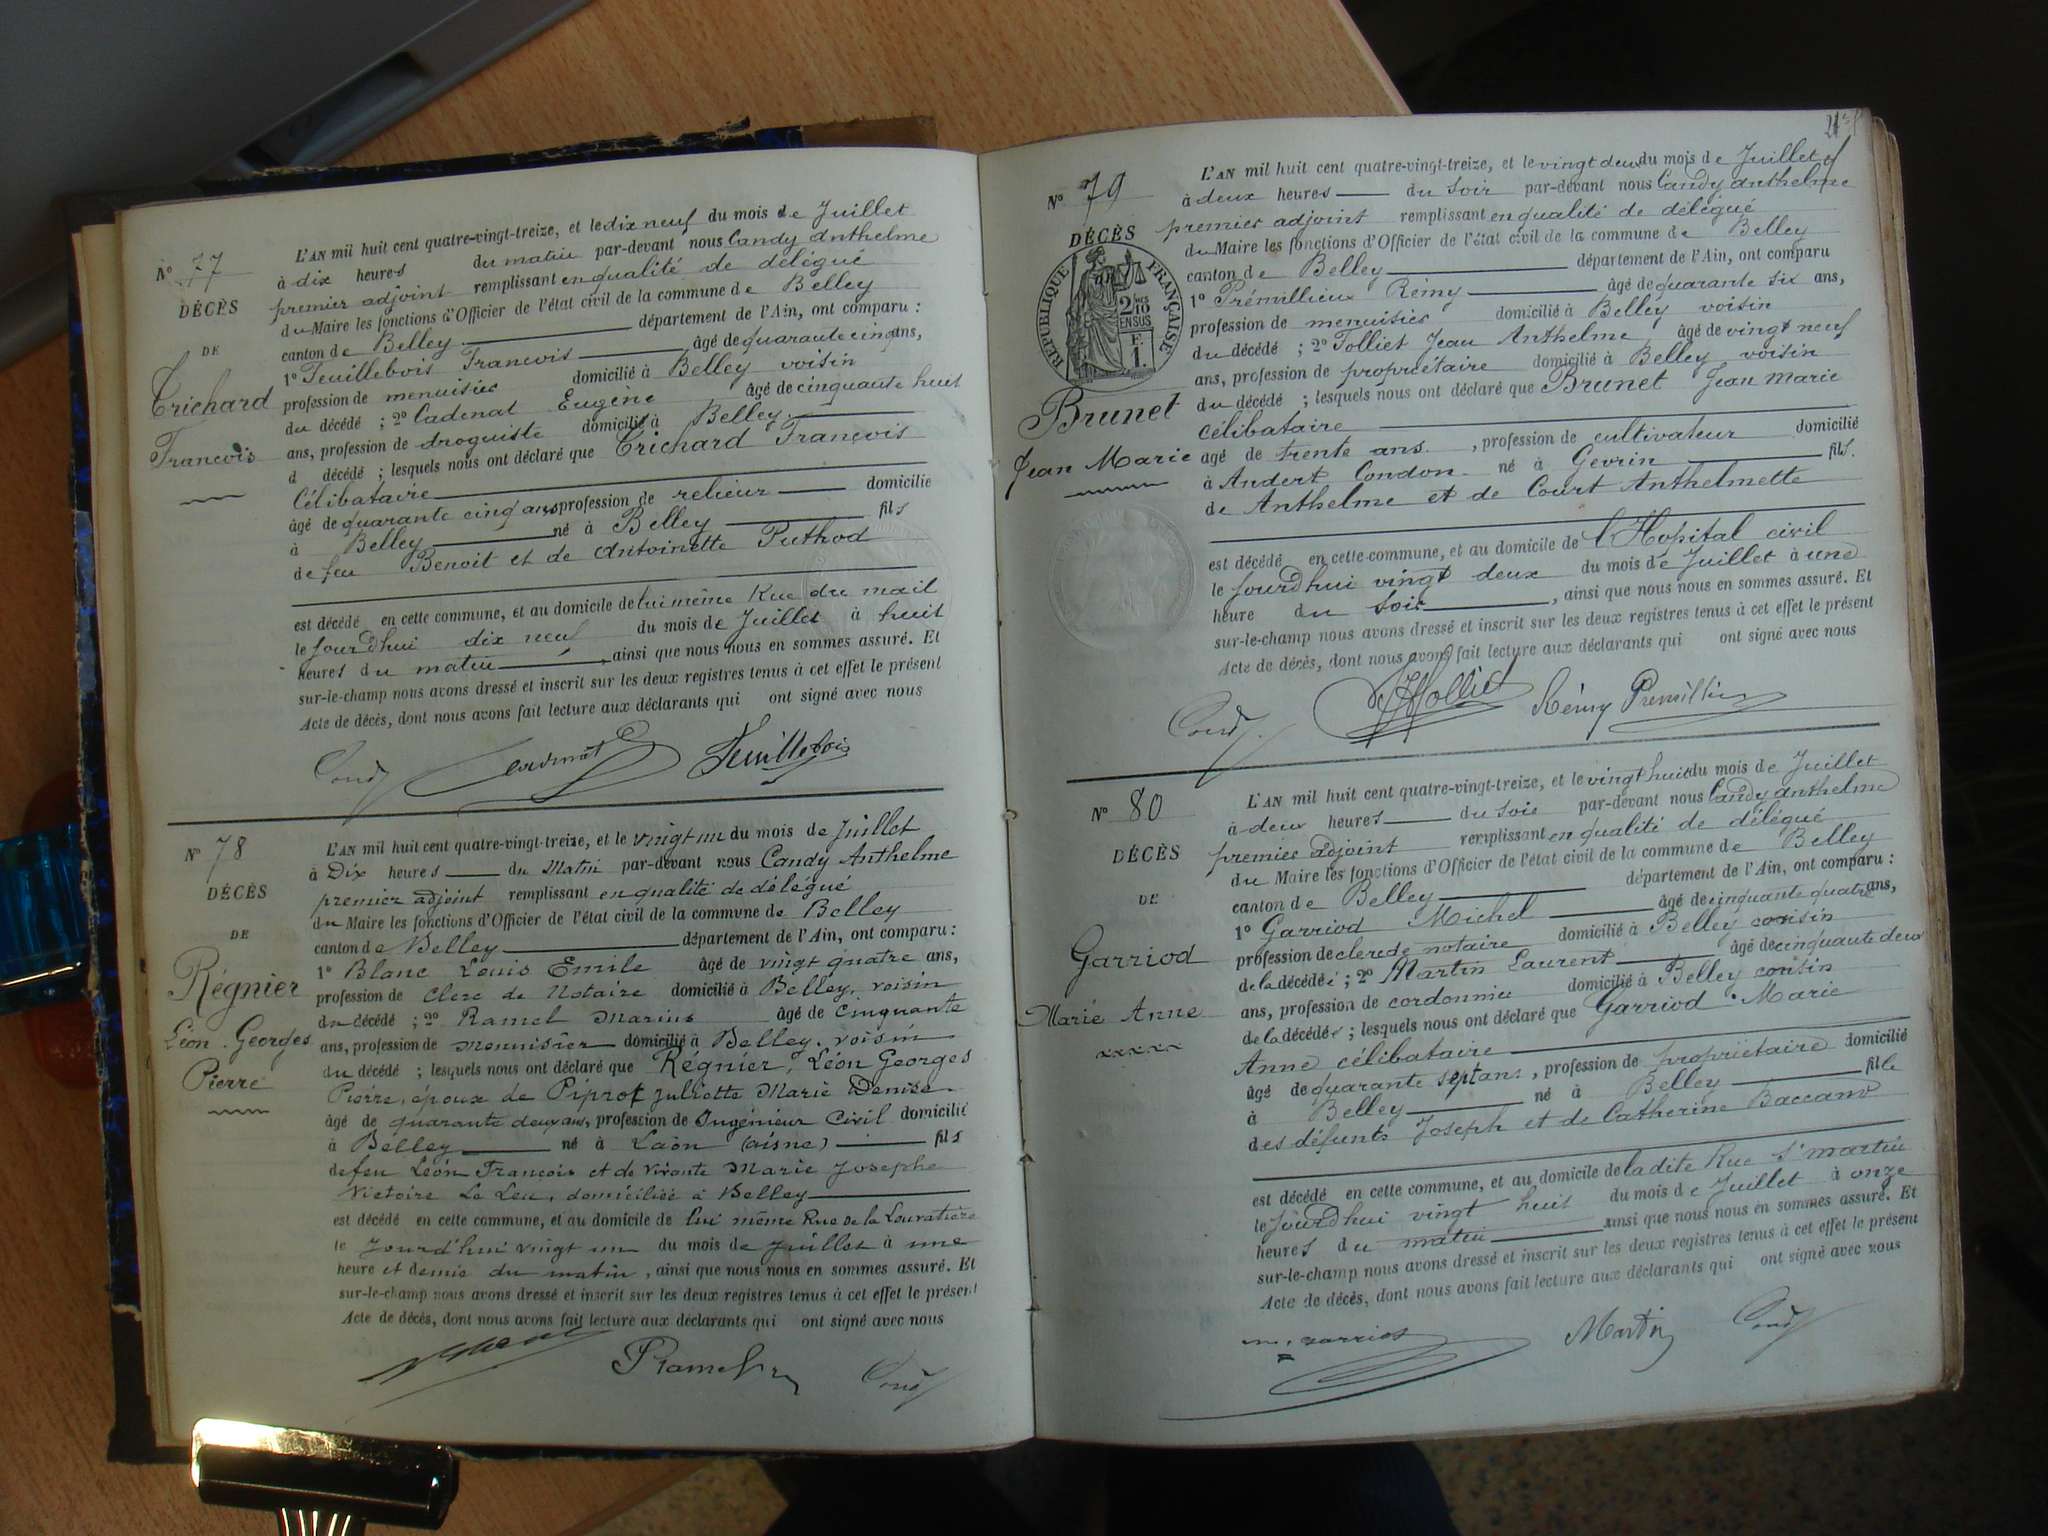 L'AN mil huit cent quatre-vingt-treize, et le dix neuf du mois de Juillet
N° 77
à dix heures du matin par-devant nous Candy Anthelme
premier adjoint remplissant en qualité de délégué
DÉCÈS
du Maire les fonctions d'Officier de l'état civil de la commune de Belley
DE
canton de Belley département de l'Ain, ont comparu :
1° Feuillebois Francois âgé de quarante cinq ans,
Trichard
profession de menuisier domicilié à Belley voisin
du décédé ; 2° Cadenat Eugène âgé de cinquante huit
Francois
ans, profession de droguiste domicilié à Belley
d décédé ; lesquels nous ont déclaré que Trichard Francois
Célibataire
âgé de quarante cinq ans, profession de relieur domicilié
à Belley né à Belley fils
de feu Benoit et de Antoinette Puthod
est décédé en cette commune, et au domicile de lui même Rue du mail
le Jourdhui dix neuf du mois de Juillet à huit
heures du matin, ainsi que nous nous en sommes assuré. Et
sur-le-champ nous avons dressé et inscrit sur les deux registres tenus à cet effet le présent
Acte de décès, dont nous avons fait lecture aux déclarants qui ont signé avec nous
Candy Cadenat Feuillebois
N° 78
L'AN mil huit cent quatre-vingt-treize, et le vingt un du mois de Juillet
à Dix heures du Matin par-devant nous Candy Anthelme
DÉCÈS
premier adjoint remplissant en qualité de délégué
du Maire les fonctions d'Officier de l'état civil de la commune de Belley
DE
canton de Belley département de l'Ain, ont comparu :
1° Blanc Louis Emile âgé de vingt quatre ans,
Régnier
profession de clerc de Notaire domicilié à Belley, voisin
du décédé ; 2° Ramel Marius âgé de cinquante
Léon Georges
ans, profession de menuisier domicilié à Belley, voisin
Pierre
du décédé ; lesquels nous ont déclaré que Régnier, Léon Georges
Pierre, époux de Piprot Juliette Marie Denise
âgé de quarante deux ans, profession de Ingénieur Civil domicilié
à Belley né à Laôn (aisne) fils
de feu Léon François et de vivante Marie Josephe
Victoire Le Leu, domiciliée à Belley
est décédé en cette commune, et au domicile de lui même Rue de la Louvatière
le Jourd'hui vingt un du mois de Juillet à une
heure et demie du matin, ainsi que nous nous en sommes assuré. Et
sur-le-champ nous avons dressé et inscrit sur les deux registres tenus à cet effet le présent
Acte de décès, dont nous avons fait lecture aux déclarants qui ont signé avec nous
Ramel Candy
L'AN mil huit cent quatre-vingt-treize, et le vingt deux du mois de Juillet
N° 79
à deux heures du soir par-devant nous Candy Anthelme
premier adjoint remplissant en qualité de délégué
DÉCÈS
du Maire les fonctions d'Officier de l'état civil de la commune de Belley
RÉPUBLIQUE FRANÇAISE
2/10 EN SUS
F. 1.
canton de Belley département de l'Ain, ont comparu
1° Prémillieux Rémy âgé de quarante six ans,
profession de menuisier domicilié à Belley voisin
du décédé ; 2° Tolliet Jean Anthelme âgé de vingt neuf
ans, profession de propriétaire domicilié à Belley voisin
Brunet
du décédé ; lesquels nous ont déclaré que Brunet Jean Marie
célibataire
Jean Marie
âgé de trente ans, profession de cultivateur domicilié
à Andert Condon né à Gevrin fils
de Anthelme et de Court Anthelmette
est décédé en cette commune, et au domicile de l'Hopital civil
le Jourdhui vingt deux du mois de Juillet à une
heure du soir, ainsi que nous nous en sommes assuré. Et
sur-le-champ nous avons dressé et inscrit sur les deux registres tenus à cet effet le présent
Acte de décès, dont nous avons fait lecture aux déclarants qui ont signé avec nous
Candy Tolliet Rémy Premillieu
L'AN mil huit cent quatre-vingt-treize, et le vingt huit du mois de Juillet
N° 80
à deux heures du soir par-devant nous Candy Anthelme
premier adjoint remplissant en qualité de délégué
DÉCÈS
du Maire les fonctions d'Officier de l'état civil de la commune de Belley
DE
canton de Belley département de l'Ain, ont comparu :
1° Garriod Michel âgé de cinquante quatre ans,
Garriod
profession de clerc de notaire domicilié à Belley cousin
de la décédée ; 2° Martin Laurent âgé de cinquante deux
Marie Anne
ans, profession de cordonnier domicilié à Belley cousin
de la décédée ; lesquels nous ont déclaré que Garriod Marie
Anne célibataire
âgé de quarante sept ans, profession de propriétaire domicilié
à Belley né à Belley fille
des défunts Joseph et de Catherine Baccard
est décédé en cette commune, et au domicile de ladite Rue St martin
le Jourdhui vingt huit du mois de Juillet à onze
heures du matin ainsi que nous nous en sommes assuré. Et
sur-le-champ nous avons dressé et inscrit sur les deux registres tenus à cet effet le présent
Acte de décès, dont nous avons fait lecture aux déclarants qui ont signé avec nous
m. garriod Martin Candy